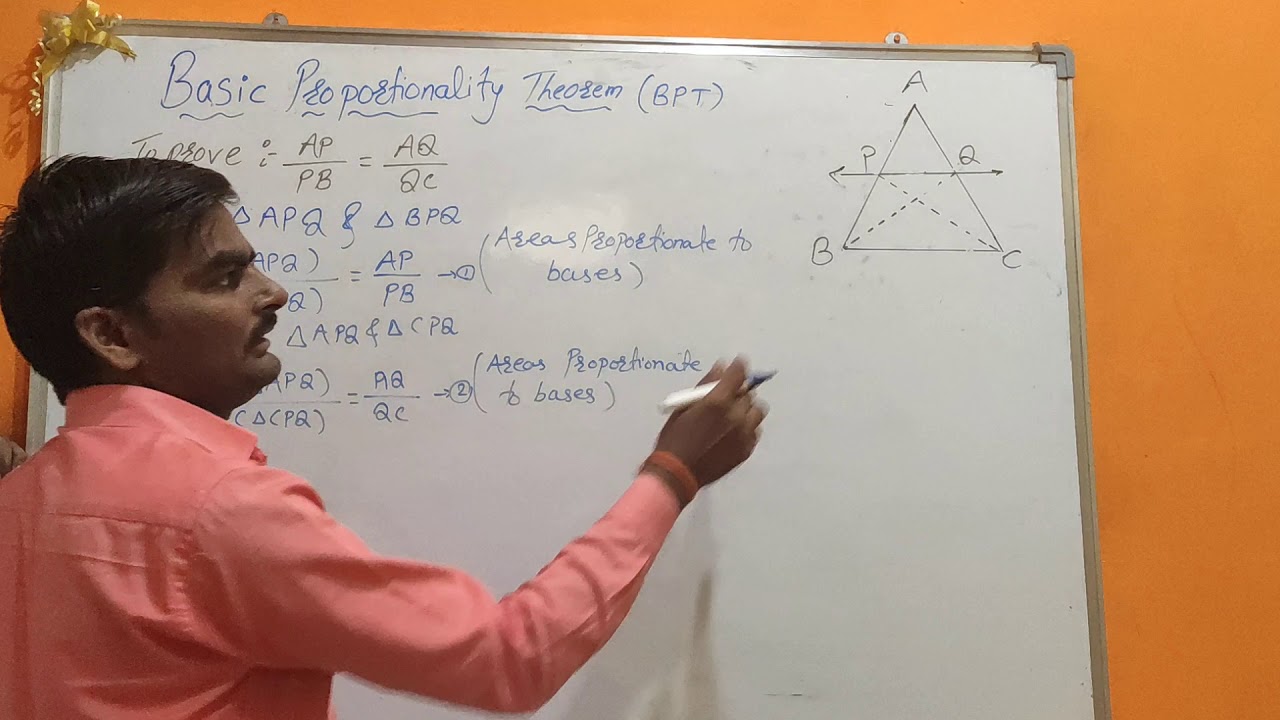 Basic Proportionality Theorem (BPT)
To prove :- AP/PB = AQ/QC
△APQ & △BPQ
APQ)/Q) = AP/PB → ① (Areas Proportionate to bases)
△APQ & △CPQ
APQ)/(△CPQ) = AQ/QC → ② (Areas Proportionate to bases)
A
P Q
B C